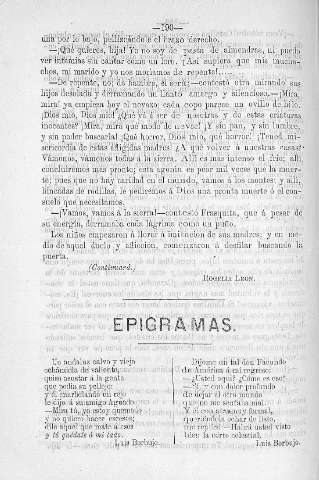 —196—
una por lo bajo, pellizcándose el brazo derecho.
—¡Qué quieres, hija! Yo no soy de pasta de almendras, ni puedo
ver infamias sin cantar como un loro. ¡Así supiera que mis mucha-
chos, mi marido y yo nos moríamos de repente!
—De repente, no; de hambre, sí será:—contestó otra mirando sus
hijos desolada y derramando un llanto amargo y silencioso.—¡Mira,
mira! ya empieza hoy el novazo cada copo parece un ovillo de hilo.
¡Dios mio, Dios mio! ¿Qué vá á ser de nuestras y de estas criaturas
inocentes? ¡Mira, mira qué modo de nevar! Y sin pan, y sin lumbre,
y sin poder buscarla! ¡Qué horror, Dios mio, qué horror! ¡Tened mi-
sericordia de estas afligidas madres ¿A qué volver á nuestras casas?
Vámonos, vámonos todas á la sierra. Allí es mas intenso el frio; allí
concluiremos mas pronto; esta agonía es peor mil veces que la muer-
te; pues que no hay caridad en el mundo, vamos á los montes, y allí,
hincadas de rodillas, le pediremos á Dios una pronta muerte ó el con-
suelo que necesitamos.
—¡Vamos, vamos á la sierra!—contestó Frasquita, que á pesar de
su energía, derramaba cada lágrima como un puño.
Los niños empezaron á llorar á imitacion de sus madres, y en me-
dio de aquel duelo y afliccion, comenzaron á desfilar buscando la
puerta.
(Continuará.)
ROGELIA LEON.
EPIGRAMAS.
Un andaluz calvo y viejo
echándola de valiente,
quiso asustar á la gente
que pedía su pellejo;
y al
le dijo á su amigo Agundo
—Mira tú, yo estoy quemao
y no quiero hacer excesos;
dile aquel que mate á esos
y te quedas á mi lado.
Luis Barbajo.
Díjome un tal don Facundo
de América á cal regreso:
—Usted aquí? ¿Cómo es eso?
—Sí, y con dolor profundo
de dejar el otro mundo
que no me sentía mal.
Y él con
queriéndola echar de listo,
me replicó: —Habrá usted visto
bien la corte celestial.
Luis Barbajo.